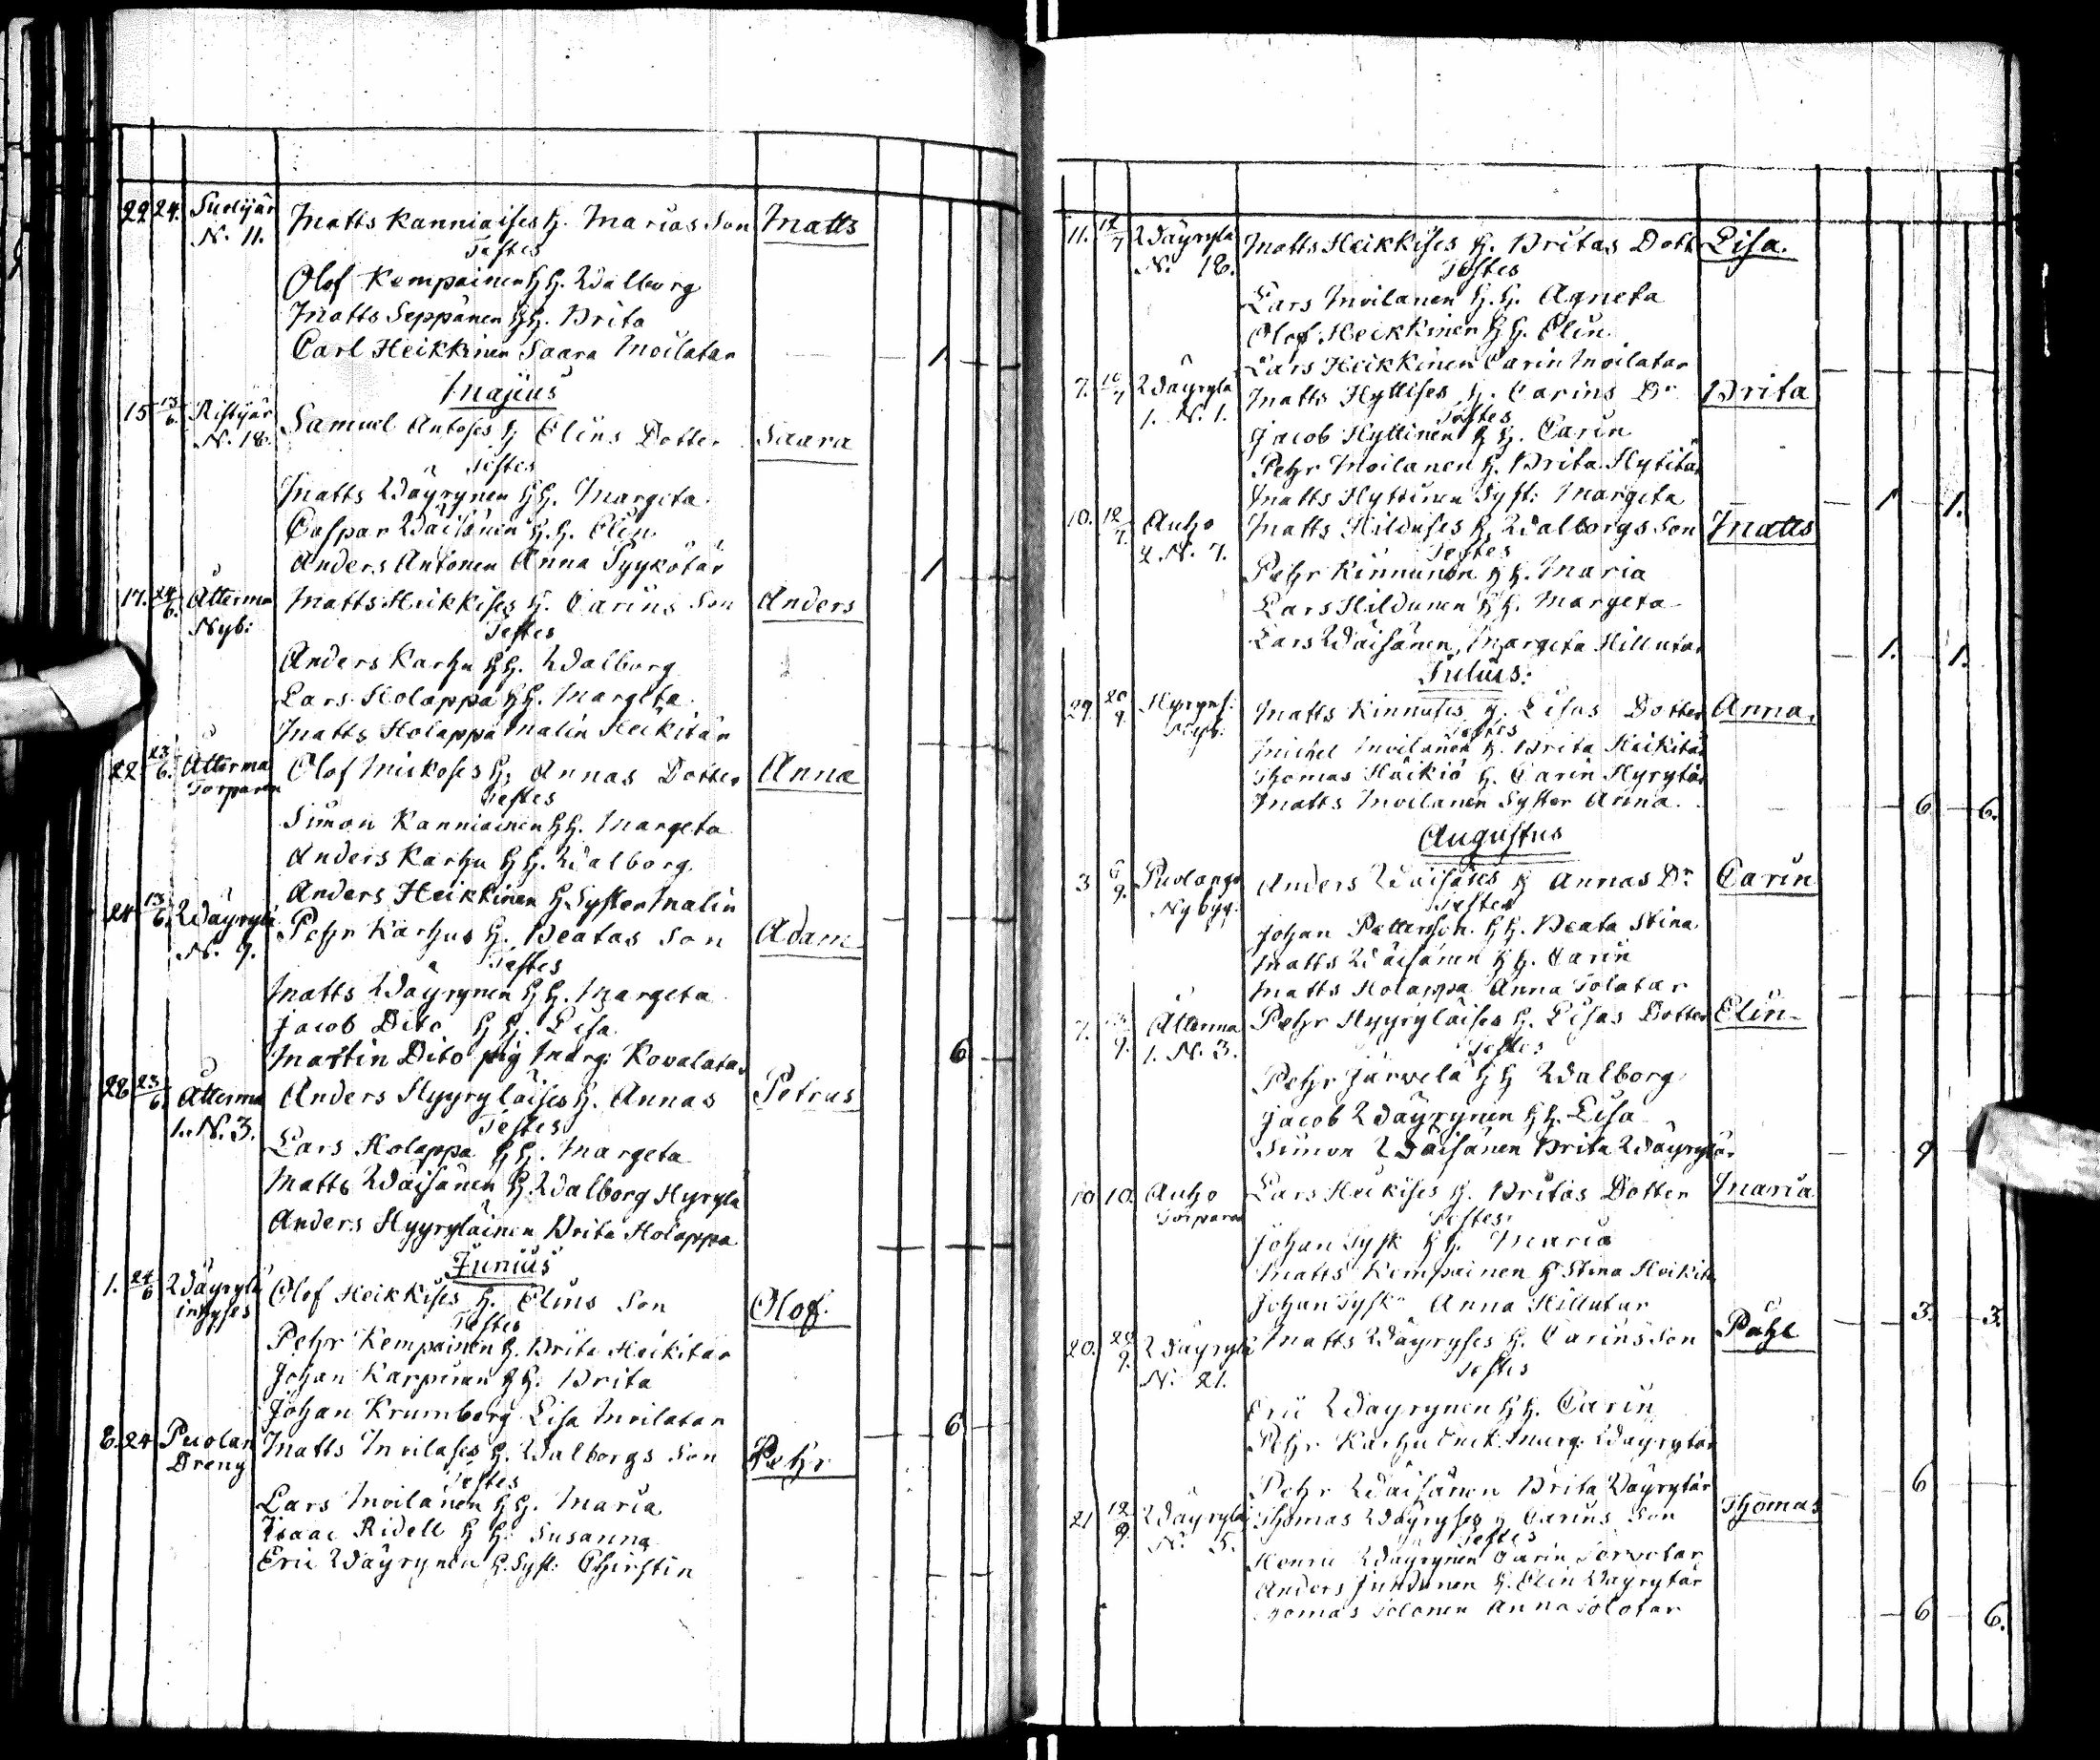 22 24. Suolijär Matts Kanniaises H. Marias Son Matts
N. 11. Testes
Olof Kempainen H H. Walborg
Matts Seppänen H H. Brita
Carl Heikkinen Saara Moilatar 1
Majus
15 13/6. Ristijär Samuel Antoses H Elins Dotter Saara
N. 18. Testes
Matts Wäyrynen H H. Margeta
Caspar Wäisänen H. H. Elin
Anders Antonen Anna Pyykötär 1
17. 24/6. Åtterma Matts Heikkises H. Carins Son Anders
Nyb: Testes
Anders Karhu H H. Walborg
Lars Holappa H H. Margeta
Matts Holappa Malin Heikitär
22 23/6. Åtterma Olof Mickoses H. Annas Dotter Anna
Torparen Testes
Simon Kanniainen H H. Margeta
Anders Karhu H H. Walborg
Anders Heikkinen H Syster Malin
24 13/6. Wäyrylä Pehr Karhus H. Beatas Son Adam
N. 9. Testes
Matts Wäyrynen H H. Margeta
Jacob Dito H H. Lisa
Martin Dito pig Marg: Kovalatar 6
28 23/6. Åtterma Anders Hyyryläises H. Annas Petrus
1. N. 3. Testes
Lars Holappa H H. Margeta
Matts Wäisänen H. Walborg Hyrylä
Anders Hyyryläinen Brita Holappa
Junius
1. 24/6 Wäyrylä Olof Heikkises H. Elins Son Olof.
inhyses Testes
Pehr Kempainen H. Brita Heikitär
Johan Karpinen H H. Brita
Johan Krumberg Lisa Moilatar 6
8. 24 Puolan Matts Moilases H. Walborgs Son Pehr
Dreng Testes
Lars Moilanen H H. Maria
Isaac Ridell H H. Susanna
Eric Wäyrynen H. Syst: Chirstin
11. 12/7 Wäyrylä Matts Heikkises H. Britas Dott Lisa.
N. 18. Testes
Lars Moilanen H. H. Agneta
Olof Heikkinen H H. Elin
Lars Heikkinen Carin Moilatar
7. 10/7 Wäyrylä Matts Hyttises H. Carins Dr Brita
1. N. 1. Testes
Jacob Hyttinen H H. Carin
Pehr Moilanen H. Brita Hytitär
Matts Hyttinen Syst: Margeta 1 1.
10. 12/7. Auho Matts Hilduses H. Walborgs Son Matts
2 N. 7. Testes
Pehr Kinnunen H H. Maria
Lars Hildunen H H. Margeta
Lars Wäisänen, Margeta Hillutar 1. 1.
Julius:
29. 20/9 Hyryns: Matts Kinnuses H. Lisas Dotter Anna.
Nyb: Testes
Michel Moilanen H. Brita Heikitär
Thomas Häikiö H. Carin Hyrytär
Matts Moilanen Syster Anna. 6 6.
Augustus
3 6/9. Puolango Anders Wäisäses H Annas Dr. Carin
Nybyg. Testes
Johan Pettersson. H H. Beata Stina
Matts Wäisänen H H. Carin
Matts Holappa Anna Tolatar
7. 13/9. Åtterma Pehr Hyyryläises H. Lisas Dotter Elin
1. N. 3. Testes
Pehr Järvelä H H Walborg
Jacob Wäyrynen H H. Lisa
Simon Wäisänen Brita Wäyrytär 9
10 10. Auho Lars Heikises H. Britas Dotter Maria
Torparen Testes
Johan Tysk H H. Maria
Matts Kempainen H Stina Heikitä
Johan Tysk Anna Hillutar 3. 3.
20. 20/9. Wäyrylä Matts Wäyryses H. Carins Son Påhl
N. 21. Testes
Eric Wäyrynen H H. Carin
Pehr Karhu Enck. Marg: Wäyrytär
Pehr Wäisänen Brita Wäyrytär 6
21 12/9 Wäyrylä Thomas Wäyryses H Carins Son Thomas
N. 5. Testes
Henric Wäyrynen Carin Torvotar
Anders Jundunen H. Elin Wäyrytär
Thomas Tolonen Anna Tolotar 6 6.